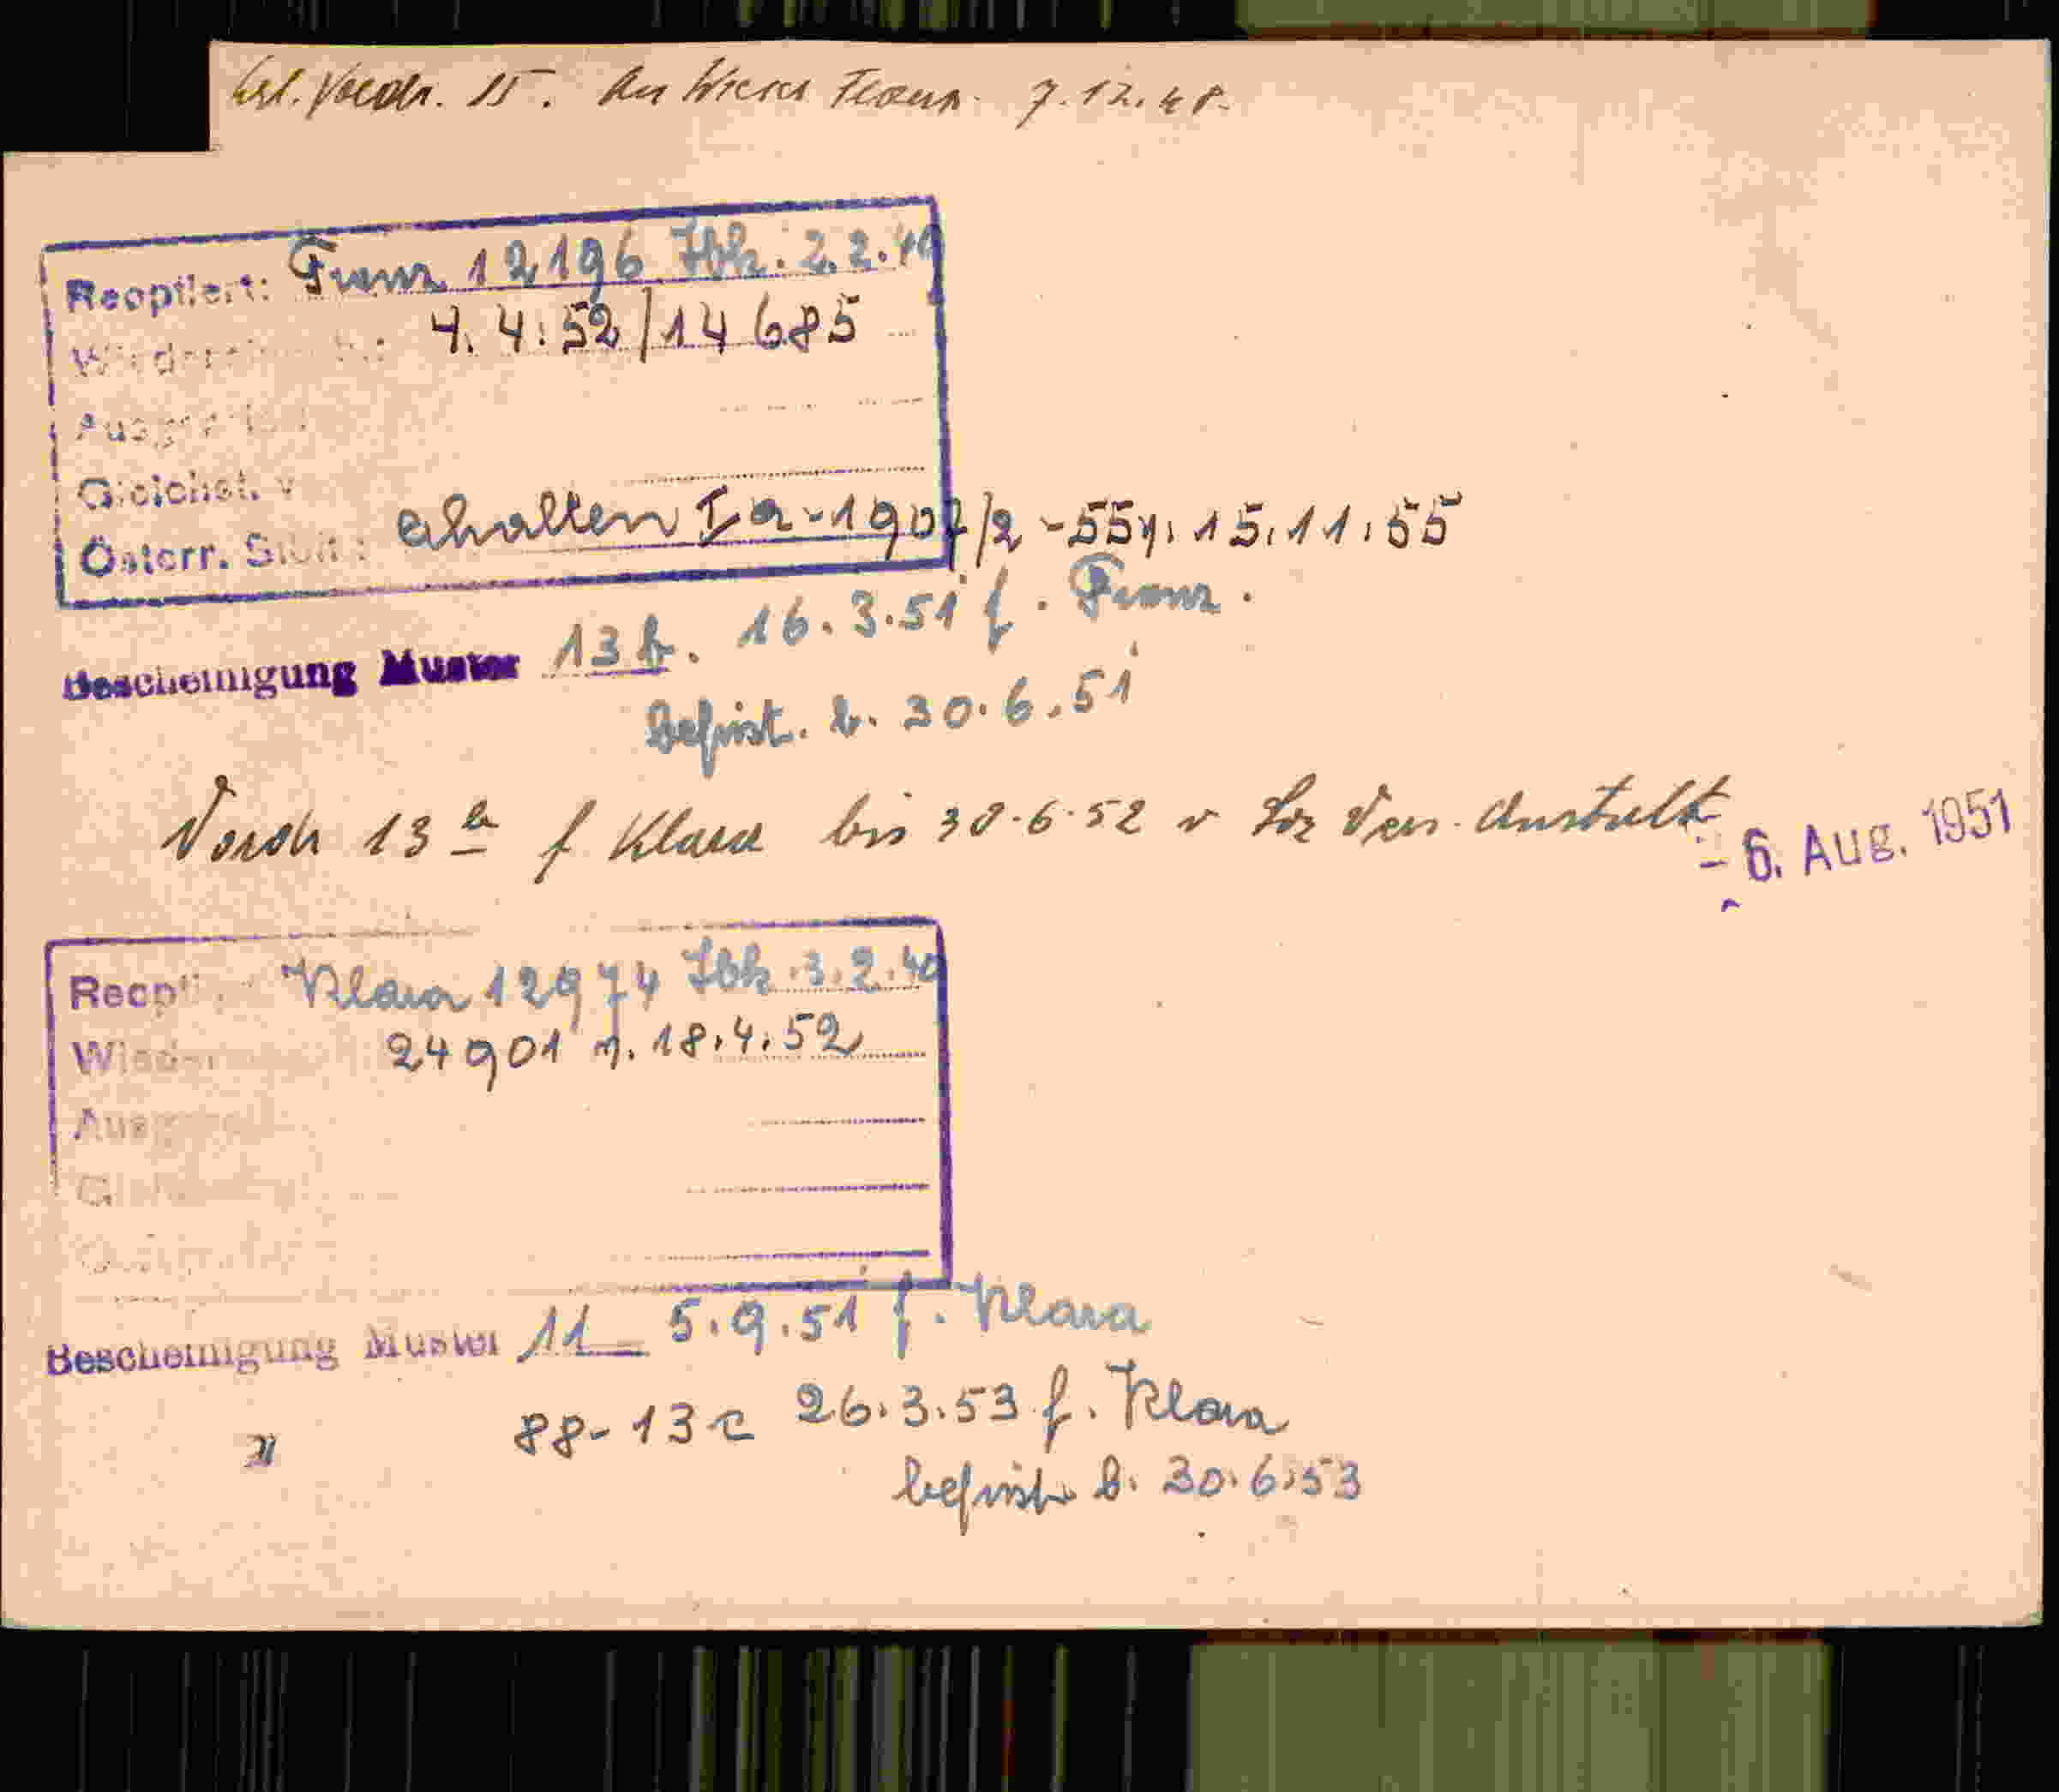 Vordr. 15. An Franz. 7.12.48.
Reoptiert: Franz 12196 Ibk. 2.2.49
4.4.52/14685
Gleichst. v
Österr. Stbü: erhalten Ia-1907/2-55 v. 15.11.55
Bescheinigung Muster 13b. 16.3.51 f. Franz.
befrist. b. 30.6.51
Vordr 13a f Klara bis 30.6.52 v Soz Vers. Anstalt
- 6. Aug. 1951
Reopti Klara 12974 Ibk. 3.2.49
Wieder 24901 v. 18.4.52
Bescheinigung Muster 11 5.9.51 f. Klara
" 88-13c 26.3.53 f. Klara
befrist. b. 30.6.53